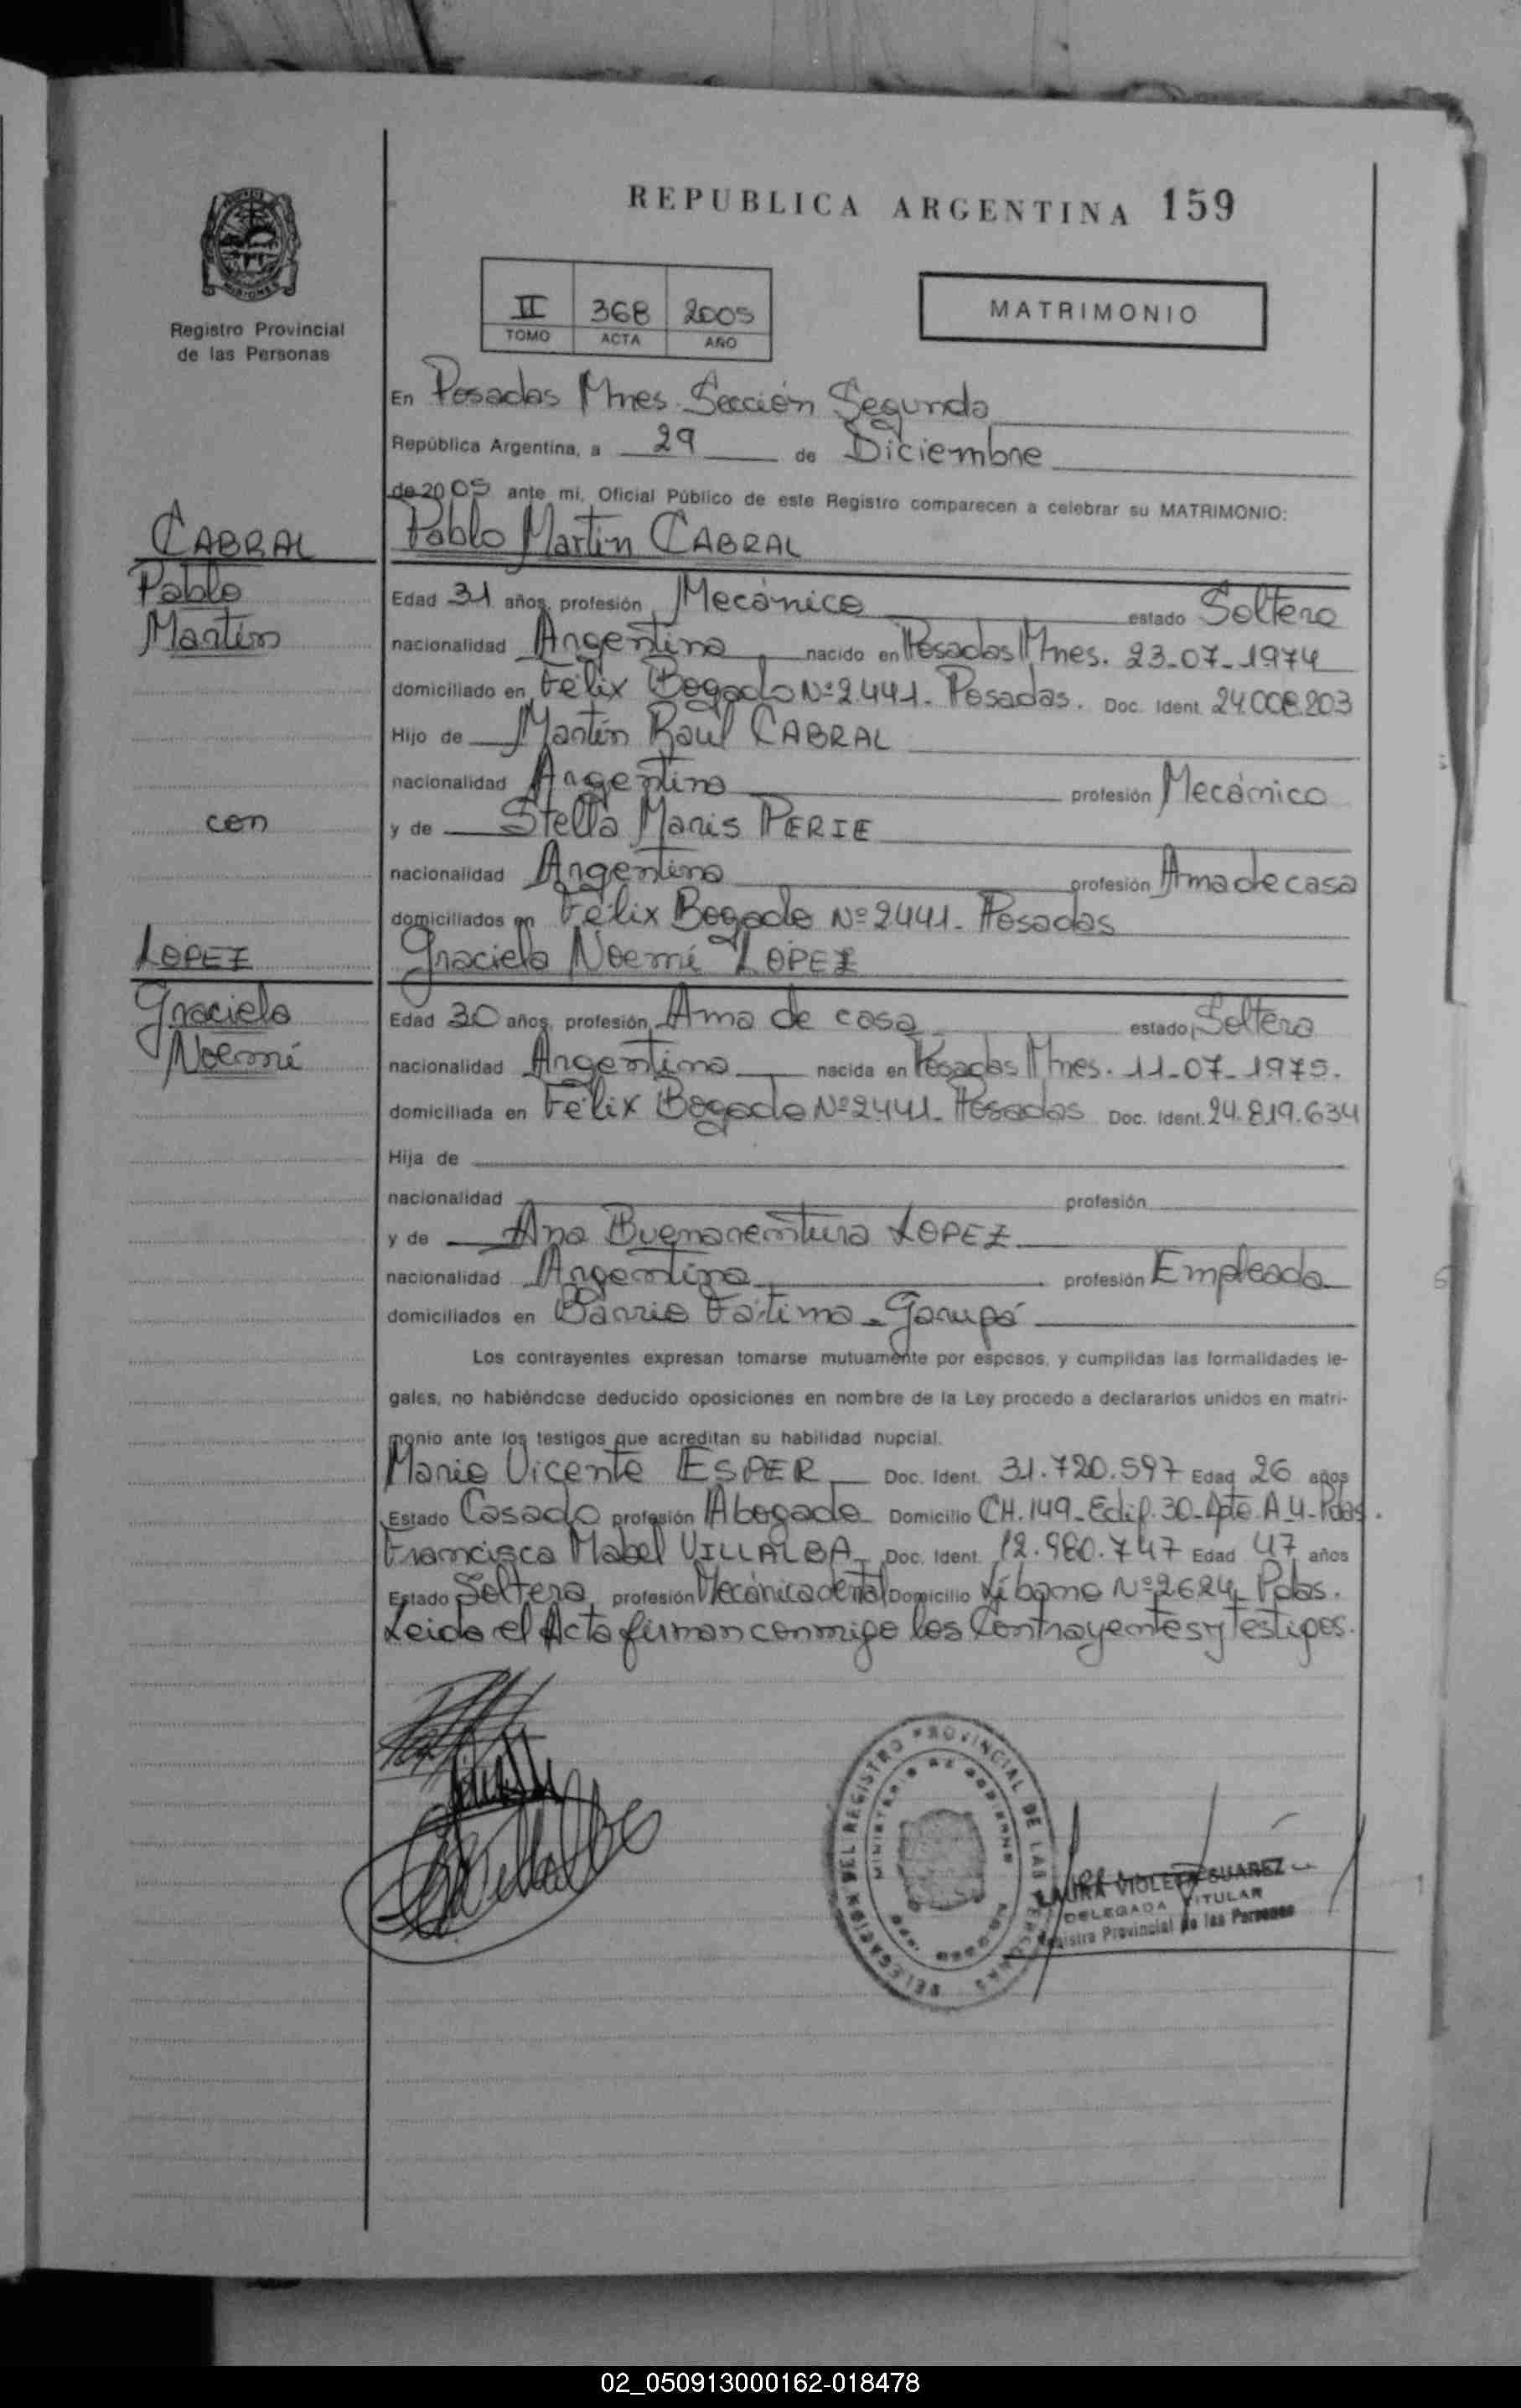 REPUBLICA ARGENTINA 159
MISIONES
Registro Provincial
de las Personas
II 368 2005
TOMO ACTA AÑO
MATRIMONIO
En Posadas Mnes. Sección Segunda
República Argentina, a 29 de Diciembre
de 2005 ante mí, Oficial Público de este Registro comparecen a celebrar su MATRIMONIO:
CABRAL
Pablo
Martín
Pablo Martín CABRAL
Edad 31 años, profesión Mecánico estado Soltero
nacionalidad Argentina nacido en Posadas Mnes. 23-07-1974
domiciliado en Félix Bogado Nº 2441. Posadas. Doc. Ident. 24.008.203
Hijo de Martín Raúl CABRAL
nacionalidad Argentina profesión Mecánico
con
y de Stella Maris PERIE
nacionalidad Argentina profesión Ama de casa
domiciliados en Félix Bogado Nº 2441. Posadas
LOPEZ
Graciela
Noemí
Graciela Noemí LOPEZ
Edad 30 años, profesión Ama de casa estado Soltera
nacionalidad Argentina nacida en Posadas Mnes. 11-07-1975.
domiciliada en Félix Bogado Nº 2441. Posadas Doc. Ident. 24.819.634
Hija de
nacionalidad profesión
y de Ana Buenaventura LOPEZ
nacionalidad Argentina profesión Empleada
domiciliados en Barrio Fátima - Garupá
Los contrayentes expresan tomarse mutuamente por esposos, y cumplidas las formalidades le-
gales, no habiéndose deducido oposiciones en nombre de la Ley procedo a declararlos unidos en matri-
monio ante los testigos que acreditan su habilidad nupcial.
Mario Vicente ESPER Doc. Ident. 31.720.597 Edad 26 años
Estado Casado profesión Abogado Domicilio CH. 149 - Edif. 30 - Dpto. A_4 - Pdas.
Francisca Mabel VILLALBA Doc. Ident. 12.980.747 Edad 47 años
Estado Soltera profesión Mecánica dental Domicilio Líbano Nº 2624 Pdas.
Leida el Acta firman conmigo los Contrayentes y Testigos.
DELEGACION DEL REGISTRO PROVINCIAL DE LAS PERSONAS
MINISTERIO DE GOBIERNO
LAURA VIOLETA SUAREZ
DELEGADA TITULAR
Registro Provincial de las Personas
02_050913000162-018478